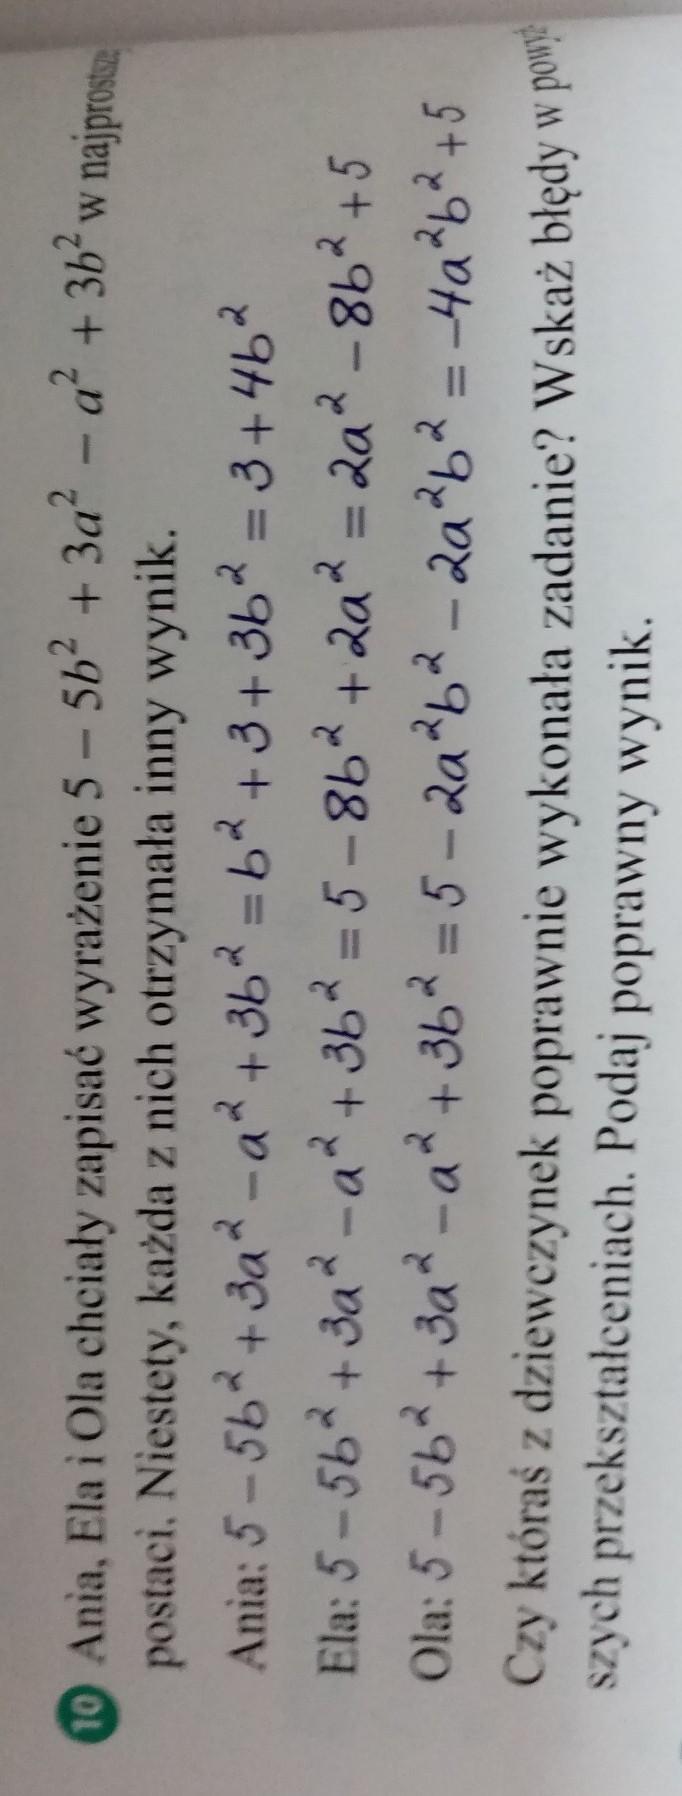 10 Ania, Ela i Ola chciały zapisać wyrażenie 5 − 5b² + 3a² − a² + 3b² w
postaci. Niestety, każda z nich otrzymała inny wynik.
Ania: 5 − 5b² + 3a² − a² + 3b² = b² + 3 + 3b² = 3 + 4b²
Ela: 5 − 5b² + 3a² − a² + 3b² = 5 − 8b² + 2a² = 2a² − 8b² + 5
Ola: 5 − 5b² + 3a² − a² + 3b² = 5 − 2a²b² − 2a²b² = −4a²b² + 5
Czy któraś z dziewczynek poprawnie wykonała zadanie? Wskaż błędy w
szych przekształceniach. Podaj poprawny wynik.